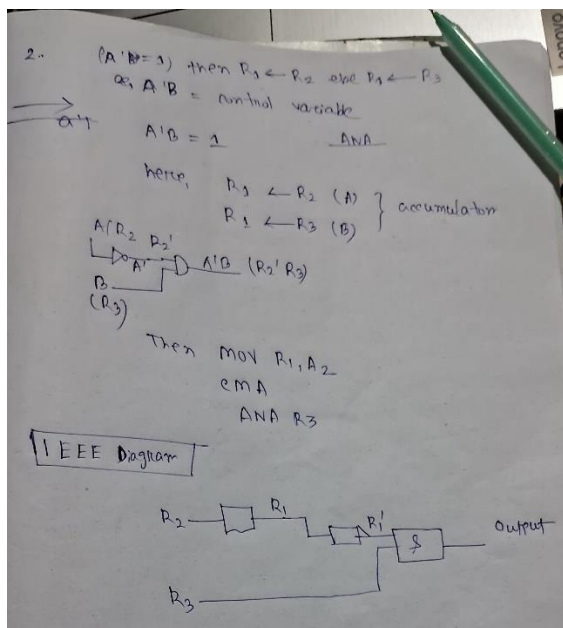 2..
(A'B=1) then R1 ← R2 else R1 ← R3
A'B = control variable
A'B = 1
ANA
here,
R1 ← R2 (A)
R1 ← R3 (B)
accumulator
A/R2 R2'
A' A'B (R2' R3)
B
(R3)
Then MOV R1, A2
CMA
ANA R3
IEEE Diagram
R2 R1 R1' & Output
R3